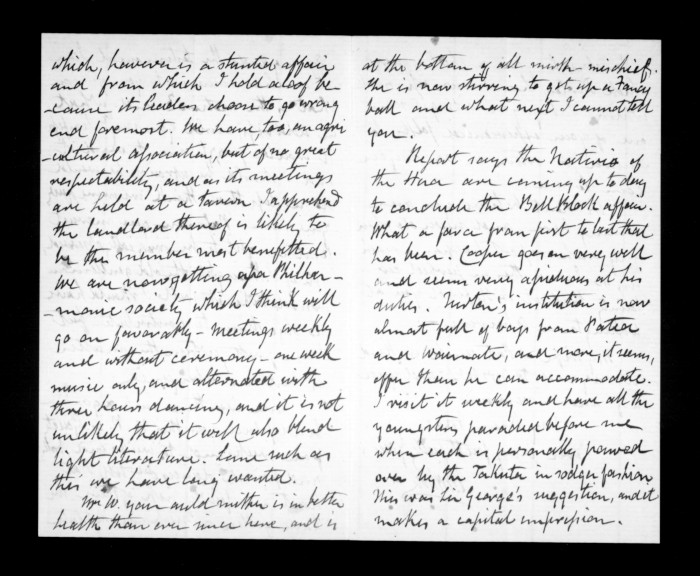 which, however is a stunted affair
and from which I hold aloof be-
-cause its leaders choose to go wrong
end foremost. We have too, an agri
-cultural association, but of no great
respectability, and as its meetings
are held at a tavern I apprehend
the landlord thereof is likely to
be the member most benefitted.
We are now getting up a Philhar-
-monic society which I think will
go on favorably - meetings weekly
and without ceremony - one week
music only, and alternated with
three hours dancing, and it is not
unlikely that it will also blend
light literature. Some such as
this we have long wanted.
Mrs W. your auld mither is in better
health than ever since here, and is
at the bottom of all mirth mischief.
She is now stirring to get up a Fancy
ball and what next I cannot tell
you.
Report says the Natives of
the Hua are coming up to day
to conclude the Bell Block affair.
What a farce from first to last that
has been. Cooper goes on very well
and seems very assiduous at his
duties. institution is now
almost full of boys from Patea
and Waimate, and more, it seems,
offer than he can accommodate.
I visit it weekly and have all the
youngsters paraded before me
when each is personally
over by the Takuta in sodger fashion
This was Sir George's suggestion, and it
makes a capital impression.